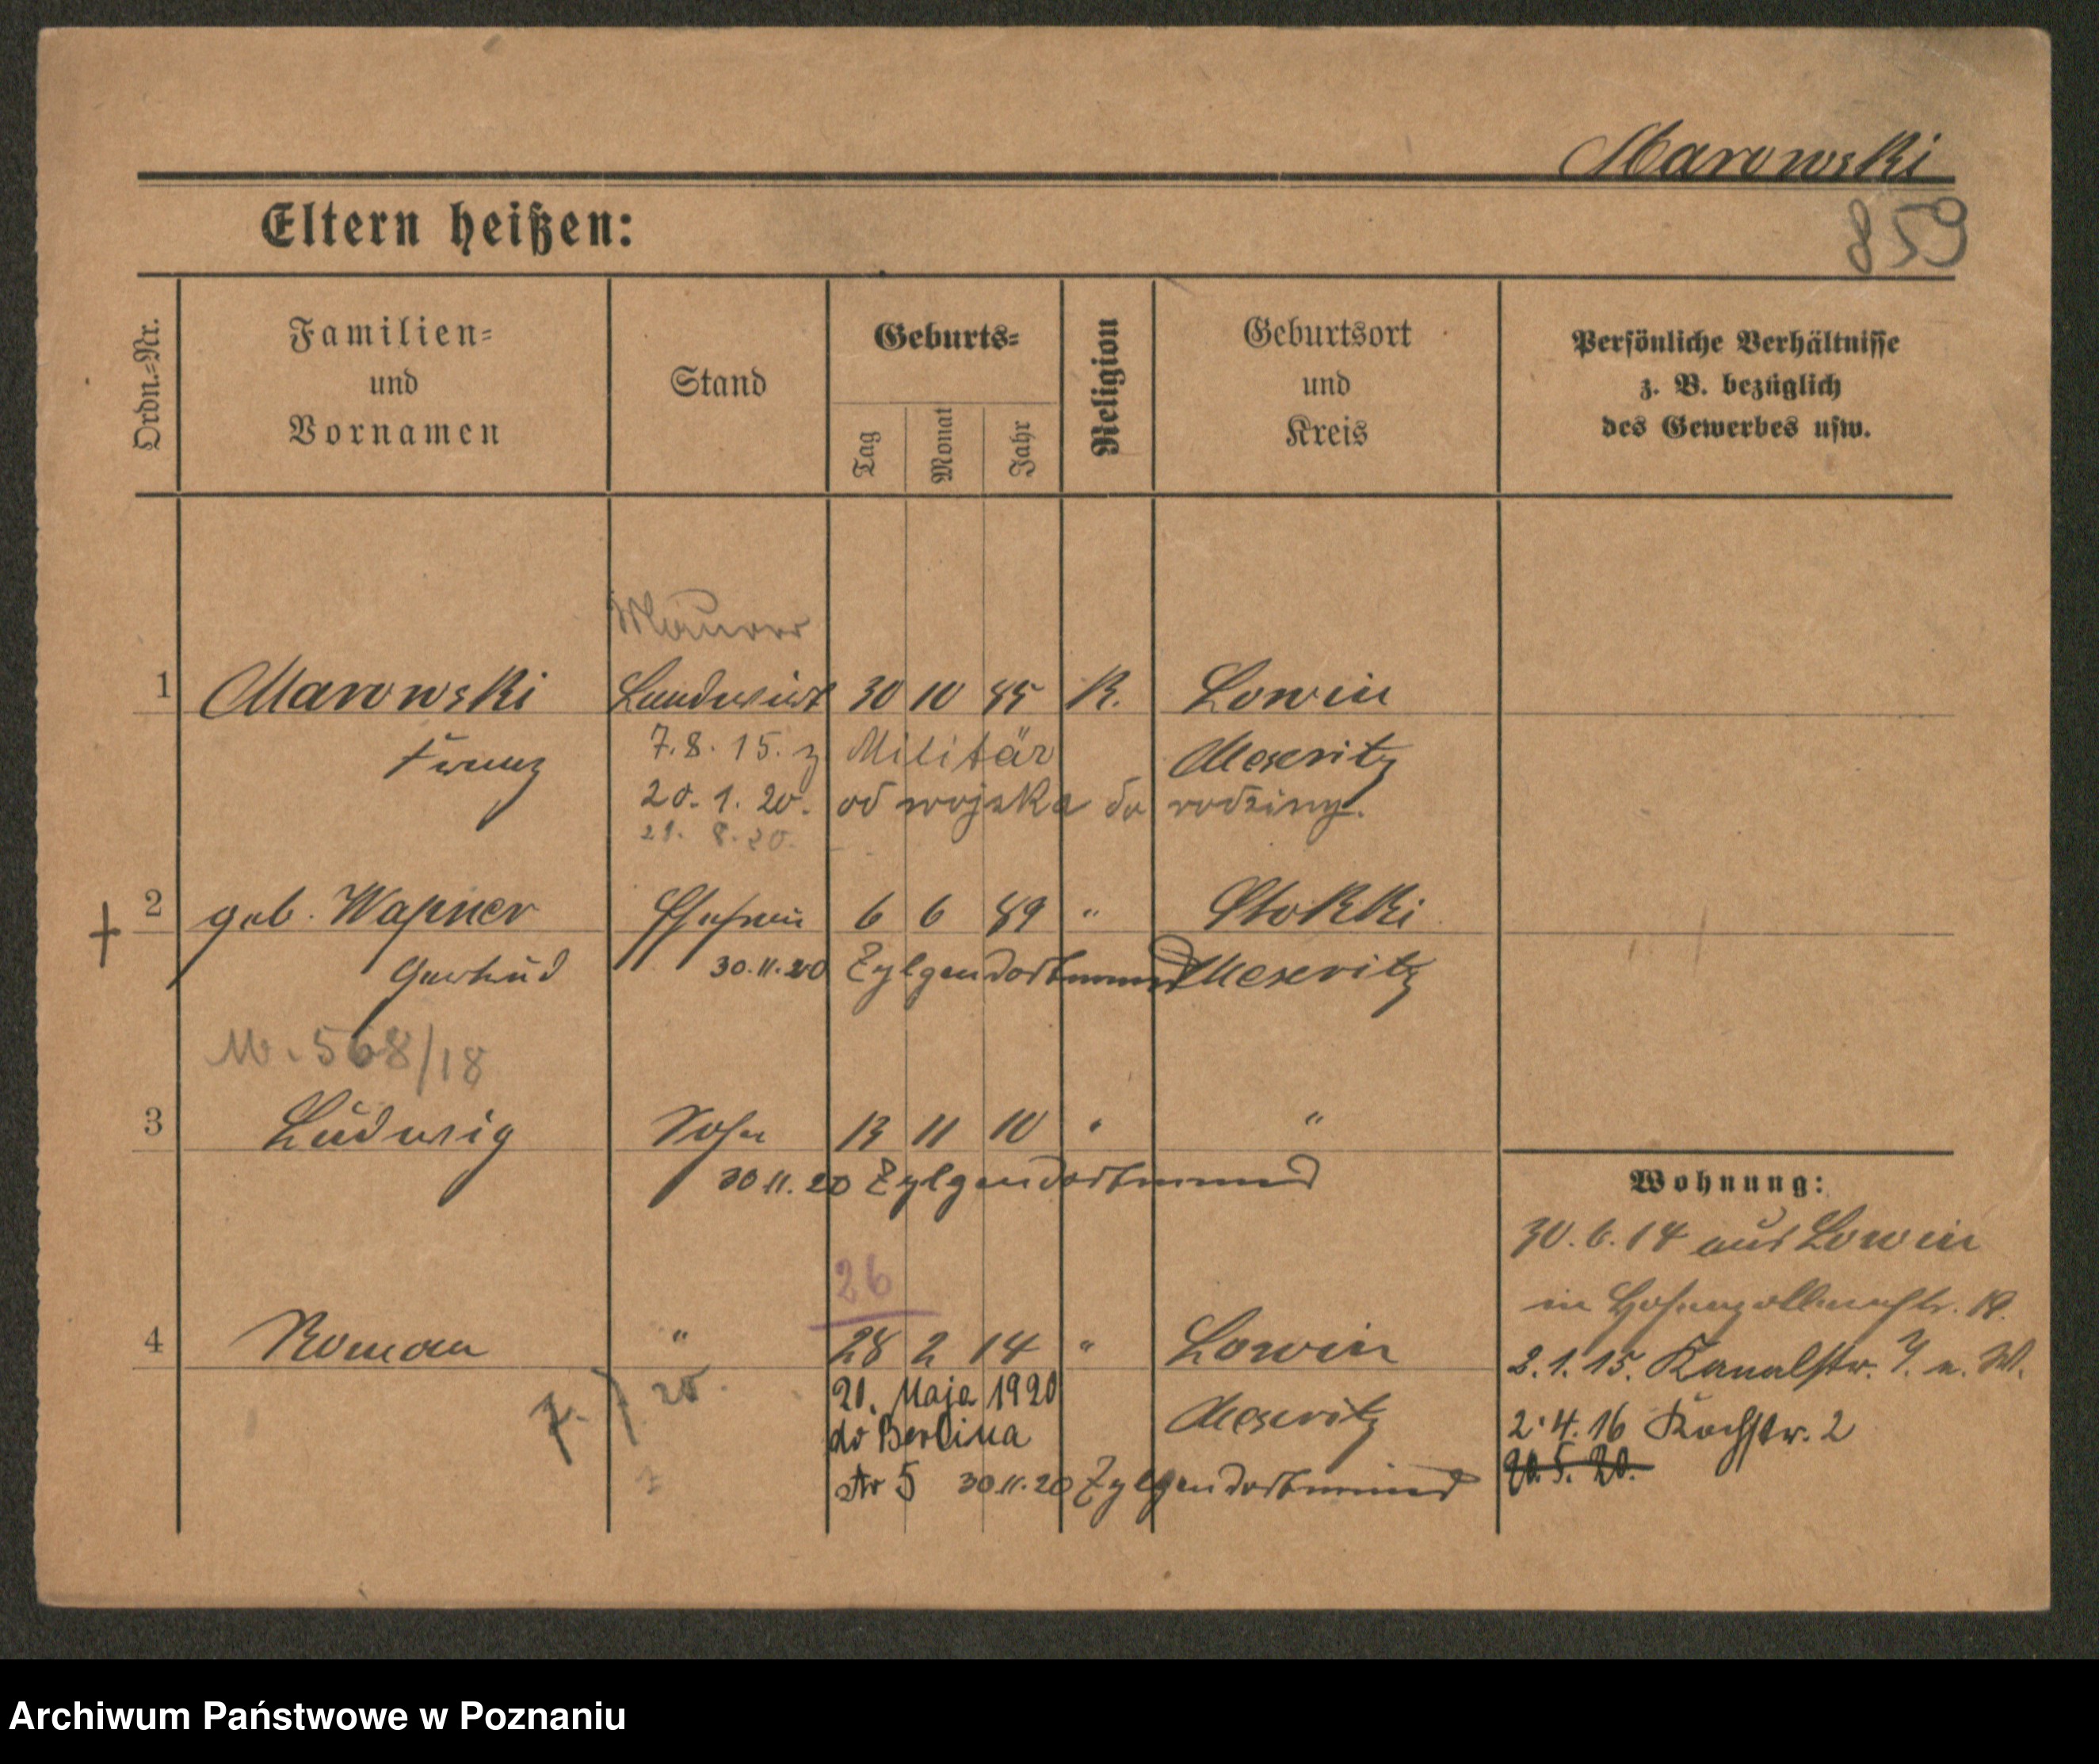 Marowski
859
Eltern heißen:
Ordn.-Nr.
Familien-
und
Vornamen
Stand
Geburts-
Tag
Monat
Jahr
Religion
Geburtsort
und
Kreis
Persönliche Verhältnisse
z. B. bezüglich
des Gewerbes usw.
Maurer
1 Marowski Landwirt 30 10 85 K. Lowin
Franz 7.8.15. z Militär Meseritz
20.1.20. od wojska do rodziny.
21. 8. 20.
2 geb. Wagner Ehefrau 6 6 89 " Stokki
Gertrud 30.11.20 Lütgendortmund Meseritz
M. 568/18
3 Ludwig Sohn 13 11 10 " "
30 11. 20 Lütgendortmund
26
4 Roman " 28 2 14 " Lowin
20. Maja 1920 Meseritz
do Berlina
Nr 5 30 11. 20
Wohnung:
30. 6. 14 aus Lowin
in Hohenzollernstr. 19.
2. 1. 15. Kanalstr. 7. n. W.
2. 4. 16 Kochstr. 2
20. 5. 20.
Archiwum Państwowe w Poznaniu